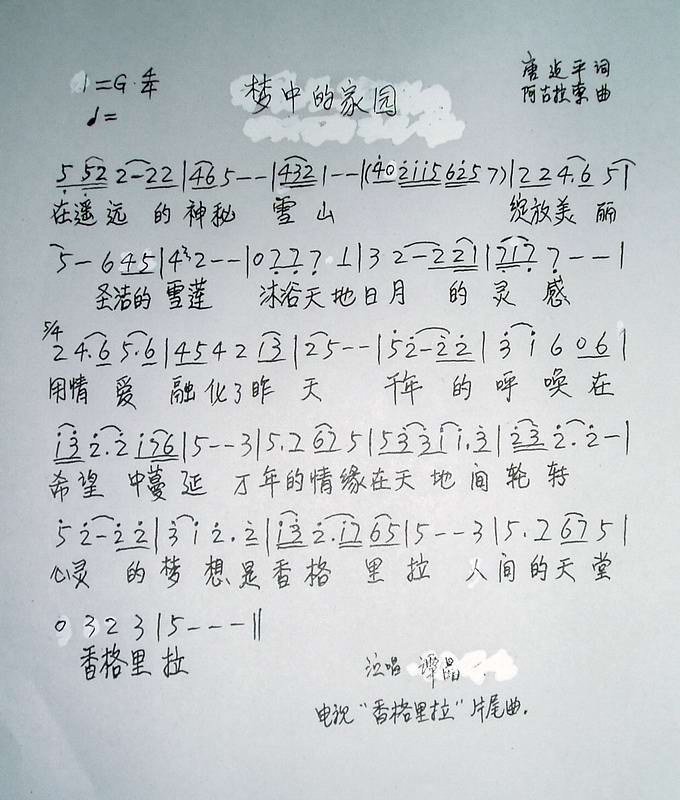 1=G 4/4
♩=
梦中的家园
唐近平 词
阿古拉泰 曲
5 52 2-22|465--|4321--|(4021156257)|224.65|
在遥远的神秘 雪山 绽放美丽
5-645|432--|07771|32-221|7177--|
圣洁的雪莲 沐浴天地日月的灵感
5/4
24.65.6|454213|25--|52-22|31606|
用情爱融化了昨天 千年的呼唤在
132.2176|5--3|5.2675|53311.3|232.2-|
希望中蔓延 万年的情缘在天地间轮转
52-22|312.2|132.1765|5--3|5.2675|
心灵的梦想是香格里拉 人间的天堂
0323|5---‖
香格里拉
泣唱 谭晶
电视“香格里拉”片尾曲.